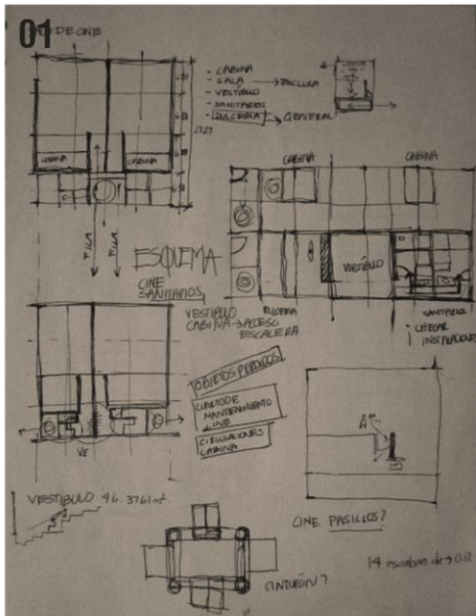 01
DE CINE
- CABINA
- SALA
- VESTÍBULO
- SANITARIOS
- DULCERÍA → GENERAL
CABINA CABINA
CABINA CABINA
FILA FILA
ESQUEMA
CINE
SANITARIOS,
VESTIBULO
CABINA → ACCESO
ESCALERA
VESTÍBULO
SANITARIOS
¡ CHECAR
INSTALACIONES
OBJETOS PERDIDOS
CUARTO DE
MANTENIMIENTO
CINE
CIRCULACIONES
CABINA
VESTIBULO 46.3761 m²
CINE PASILLOS?
CINTURÓN?
14 escalones de